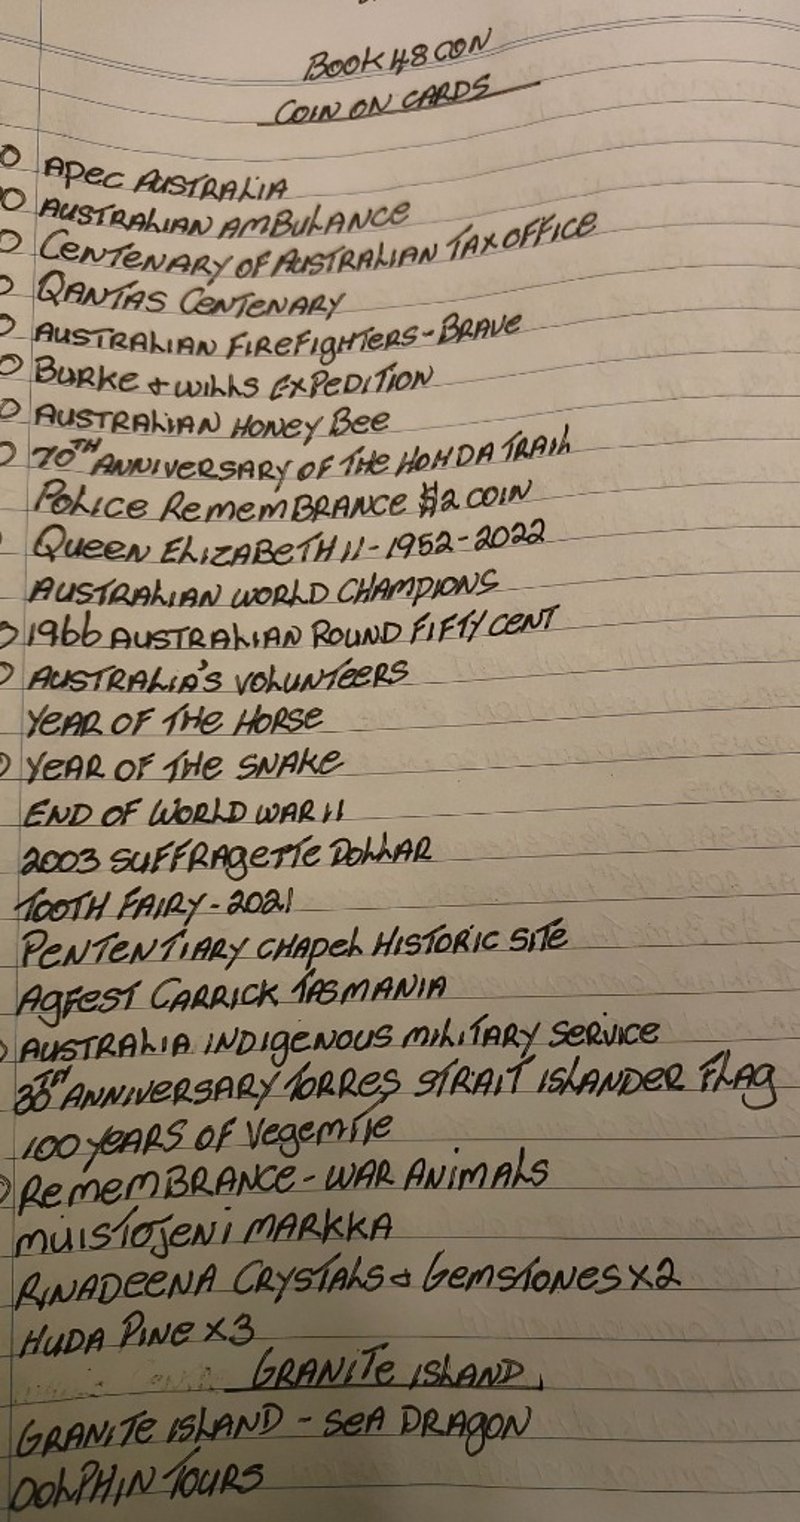 BOOK 48 CON
COIN ON CARDS
APEC AUSTRALIA
AUSTRALIAN AMBULANCE
CENTENARY OF AUSTRALIAN TAX OFFICE
QANTAS CENTENARY
AUSTRALIAN FIREFIGHTERS - BRAVE
BURKE + WILLS EXPEDITION
AUSTRALIAN HONEY BEE
70TH ANNIVERSARY OF THE HOHDA TRAIL
POLICE REMEMBRANCE $2 COIN
QUEEN ELIZABETH II - 1952 - 2022
AUSTRALIAN WORLD CHAMPIONS
1966 AUSTRALIAN ROUND FIFTY CENT
AUSTRALIA'S VOLUNTEERS
YEAR OF THE HORSE
YEAR OF THE SNAKE
END OF WORLD WAR II
2003 SUFFRAGETTE DOLLAR
TOOTH FAIRY - 2021
PENTENTIARY CHAPEL HISTORIC SITE
AGFEST CARRICK TASMANIA
AUSTRALIA INDIGENOUS MILITARY SERVICE
30TH ANNIVERSARY TORRES STRAIT ISLANDER FLAG
100 YEARS OF VEGEMITE
REMEMBRANCE - WAR ANIMALS
MUISTOJENI MARKKA
RINADEENA CRYSTALS & GEMSTONES X2
HUDA PINE X3
GRANITE ISLAND
GRANITE ISLAND - SEA DRAGON
DOLPHIN TOURS